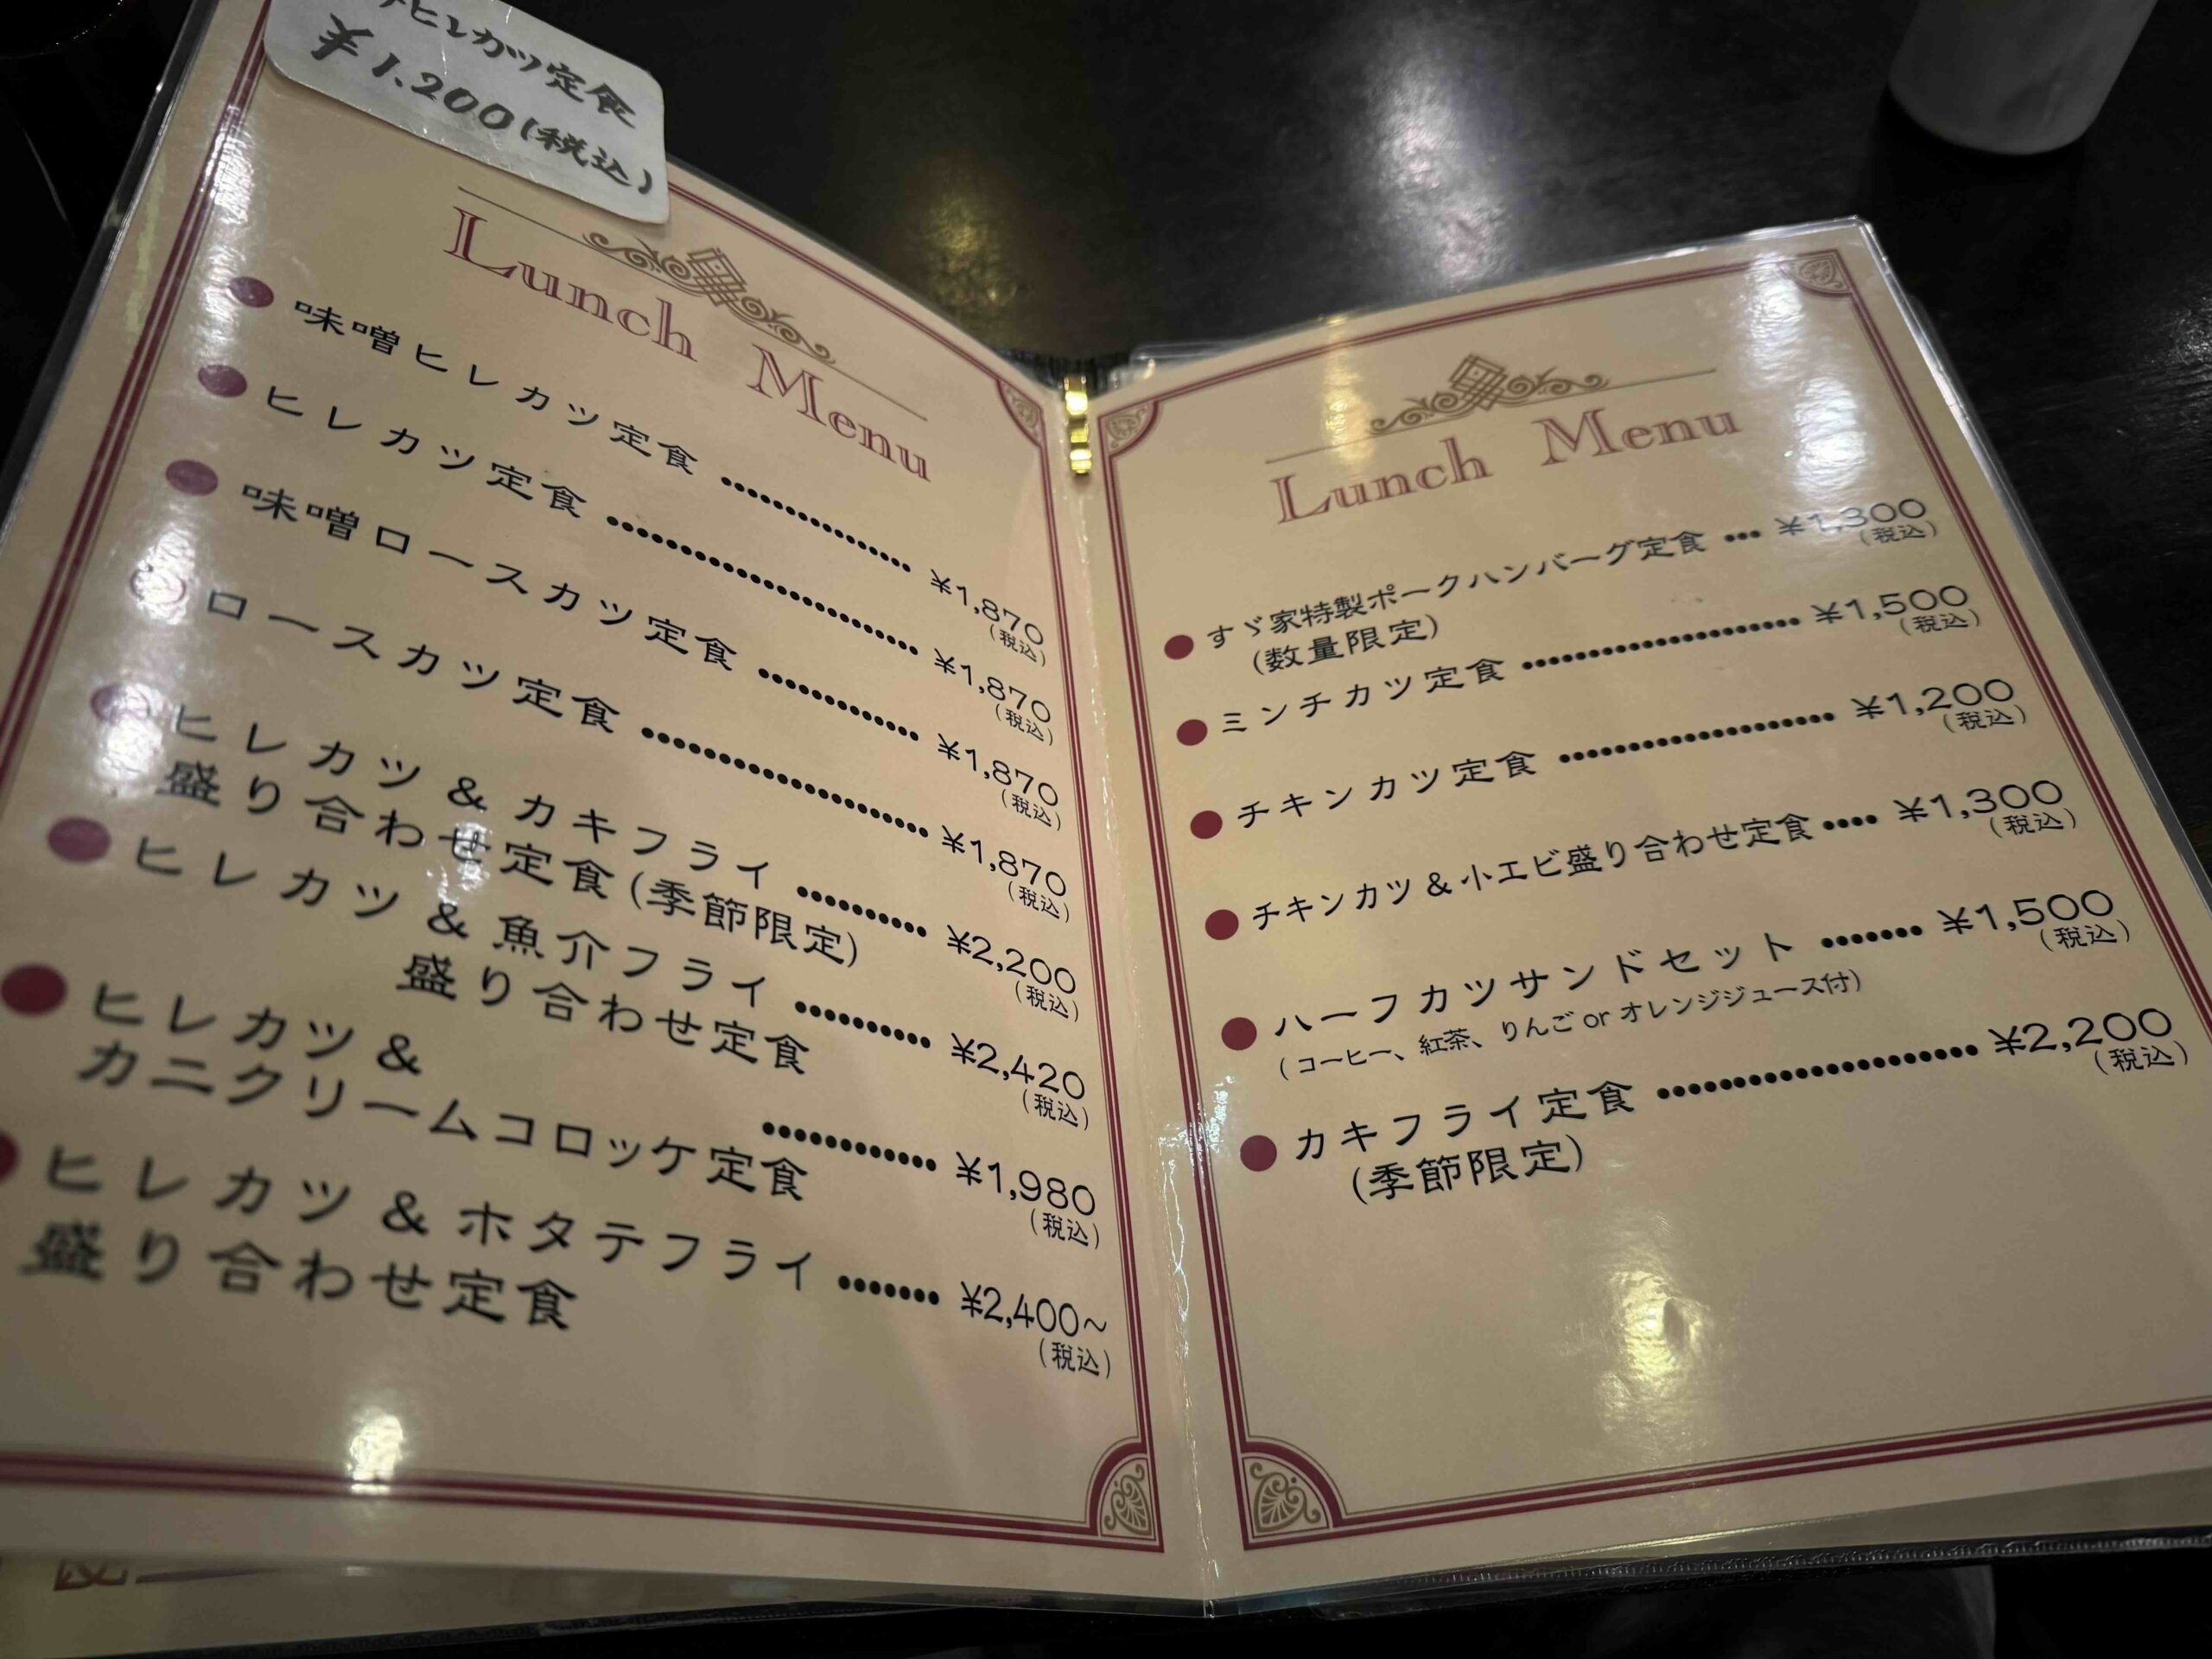 ヒレカツ定食
¥1.200(税込)
Lunch Menu
味噌ヒレカツ定食 ¥1,870
(税込)
ヒレカツ定食 ¥1,870
(税込)
味噌ロースカツ定食 ¥1,870
(税込)
ロースカツ定食 ¥1,870
(税込)
ヒレカツ & カキフライ ¥2,200
盛り合わせ定食(季節限定) (税込)
ヒレカツ & 魚介フライ ¥2,420
盛り合わせ定食 (税込)
ヒレカツ &
カニクリームコロッケ定食 ¥1,980
(税込)
ヒレカツ & ホタテフライ ¥2,400~
盛り合わせ定食 (税込)
Lunch Menu
すゞ家特製ポークハンバーグ定食 ¥1,300
(数量限定) (税込)
ミンチカツ定食 ¥1,500
(税込)
チキンカツ定食 ¥1,200
(税込)
チキンカツ & 小エビ盛り合わせ定食 ¥1,300
(税込)
ハーフカツサンドセット ¥1,500
(コーヒー、紅茶、りんご or オレンジジュース付) (税込)
カキフライ定食 ¥2,200
(季節限定) (税込)